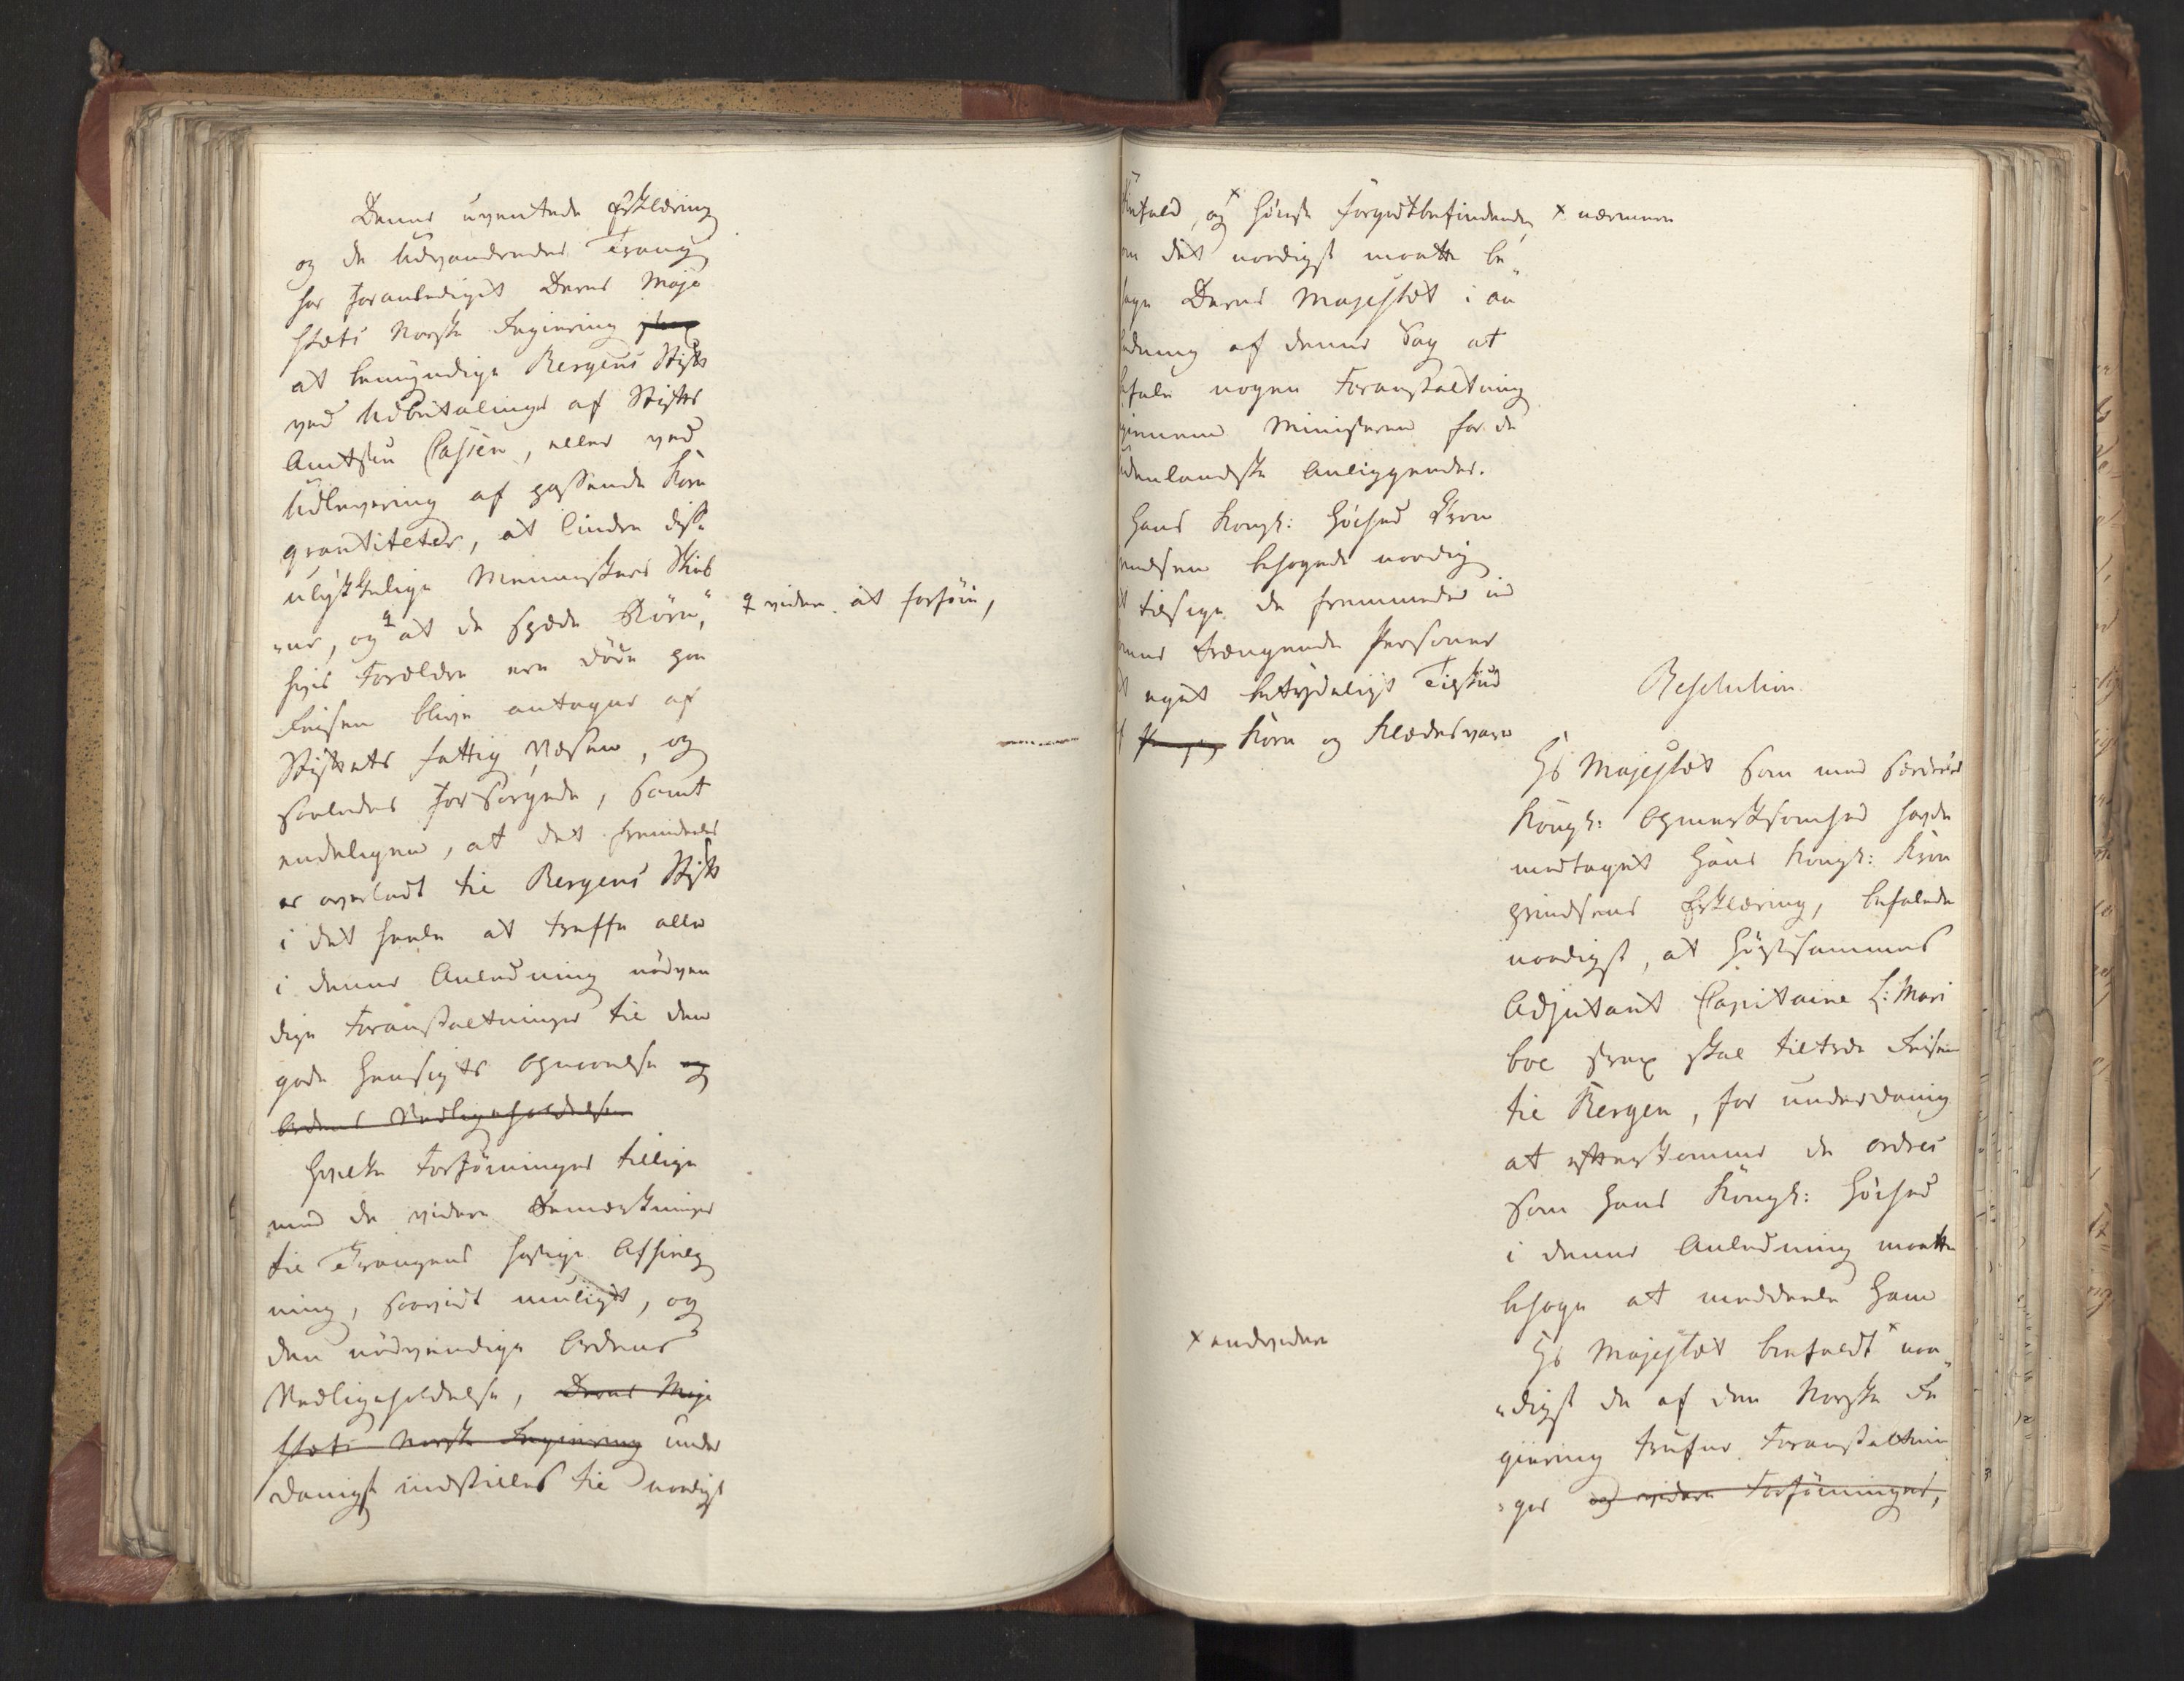 Denne uventede Erklæring
og de Udvandredes Trang
har foranlediget Deres Maje
stæts Norske Regiering strax
at bemyndige Bergens Stift
ved Udbetalinger af Stifts
Amtstue Cassen, eller ved
Udlevering af passende Korn
qvantiteter, at lindre disse
ulykkelige Menneskers Skieb
"ne, og at de spæde Börn,"
hvis Forældre ere døde paa
Reisen blive antagne af
Stiftets fattig Væsen, og
saaledes forsörgede, samt
endeligen, at det
er overladt til Bergens Stift
i det heele at træffe alle
i denne Anledning nödven
dige Foranstaltninger til den
gode Hensigts Opnaaelse og
Ordens Vedligeholdelse
Hvilke Forföininger tillige
med de videre Bemærkninger
til Trangens hastige Afhielp
ning, saavidt muligt, og
den nödvendige Ordens
Vedligeholdelse, Deres Maje
stæts Norske Regiering under
danigst indstilles til naadigst
videre at forföie,
Bifald, og höieste forgodtbefindende
om det naadigst maatte be"
hage Deres Majestæt i an
ledning af denne Sag at
befale nogen Foranstaltning
giennem Ministeren for de
udenlandske Anliggender.
Hans Kongl: Höihed Kron
prindsen behagede naadig
at tilsige de fremmede
trængende Personer
et eget betydeligt Tilskud
af Korn og Klædesvare
x nærmere
Resolution.
Hs Majestæt som med særdeles
Kongl: Opmærksomhed havde
modtaget Hans Kongl: Kron
prindsens Erklæring, befalede
naadigst, at Höistsammes
Adjutant Capitaine L: Mari
boe strax skal tiltræde Reisen
til Bergen, for underdanig
at efterkomme de ordres
som Hans Kongl: Höihed
i denne Anledning maatte
behage at meddeele Ham
Hs Majestæt bifaldt x naa
"digst de af den Norske Re
giering trufne Foranstaltnin
"ger og videre Forföininger,
x endvidere